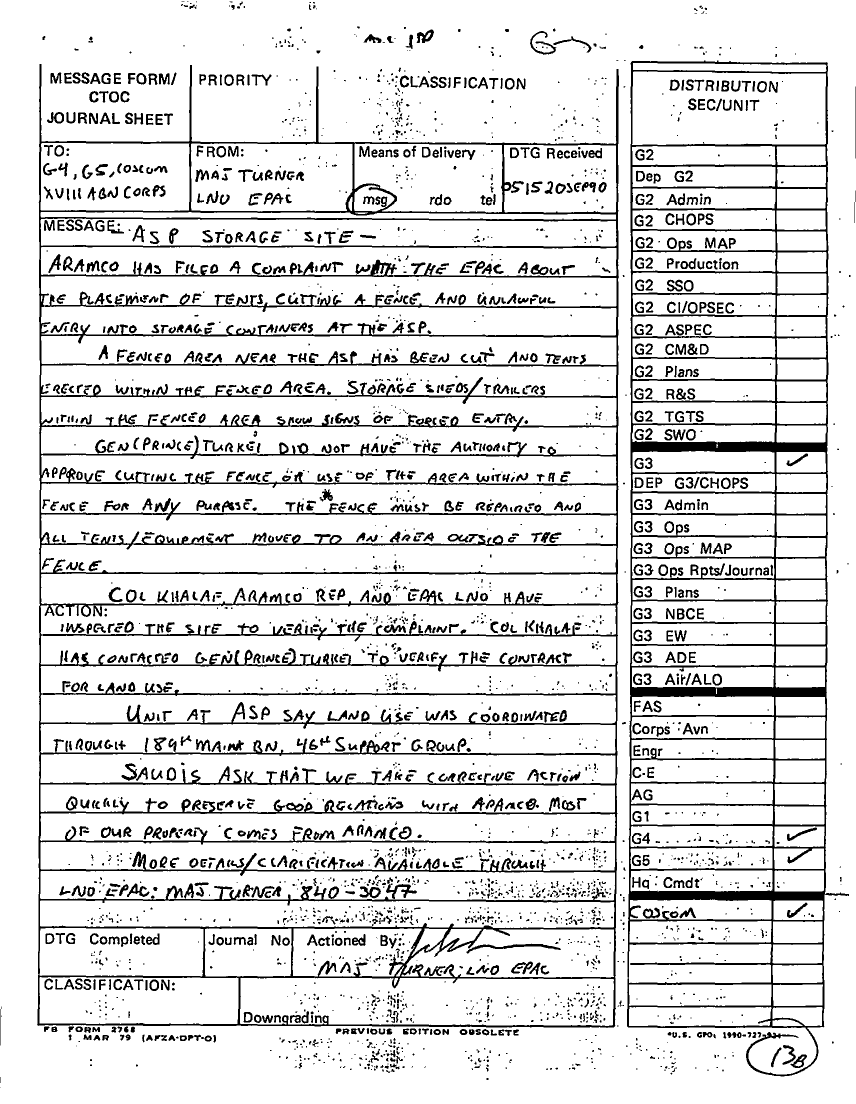 MESSAGE FORM/
CTOC
JOURNAL SHEET
PRIORITY
CLASSIFICATION
TO:
G-4, G5, COSCOM
XVIII ABN CORPS
FROM:
MAJ TURNER
LNO EPAC
Means of Delivery
msg rdo tel
DTG Received
051520SEP90
MESSAGE: ASP STORAGE SITE —
ARAMCO HAS FILED A COMPLAINT WITH THE EPAC ABOUT
THE PLACEMENT OF TENTS, CUTTING A FENCE, AND UNLAWFUL
ENTRY INTO STORAGE CONTAINERS AT THE ASP.
A FENCED AREA NEAR THE ASP HAS BEEN CUT AND TENTS
ERECTED WITHIN THE FENCED AREA. STORAGE SHEDS/TRAILERS
WITHIN THE FENCED AREA SHOW SIGNS OF FORCED ENTRY.
GEN(PRINCE)TURKEI DID NOT HAVE THE AUTHORITY TO
APPROVE CUTTING THE FENCE, OR USE OF THE AREA WITHIN THE
FENCE FOR ANY PURPOSE. THE FENCE MUST BE REPAIRED AND
ALL TENTS/EQUIPMENT MOVED TO AN AREA OUTSIDE THE
FENCE.
COL KHALAF, ARAMCO REP, AND EPAC LNO HAVE
ACTION:
INSPECTED THE SITE TO VERIFY THE COMPLAINT. COL KHALAF
HAS CONTACTED GEN(PRINCE)TURKEI TO VERIFY THE CONTRACT
FOR LAND USE.
UNIT AT ASP SAY LAND USE WAS COORDINATED
THROUGH 189th MAINT BN, 46th SUPPORT GROUP.
SAUDIS ASK THAT WE TAKE CORRECTIVE ACTION
QUICKLY TO PRESERVE GOOD RELATIONS WITH ARAMCO. MOST
OF OUR PROPERTY COMES FROM ARAMCO.
MORE DETAILS/CLARIFICATION AVAILABLE THROUGH
LNO EPAC: MAJ TURNER, 840-3047
DTG Completed
Journal No
Actioned By:
MAJ TURNER, LNO EPAC
CLASSIFICATION:
Downgrading
FB FORM 2768
1 MAR 79 (AFZA-DPT-O)
PREVIOUS EDITION OBSOLETE
DISTRIBUTION
SEC/UNIT
G2
Dep G2
G2 Admin
G2 CHOPS
G2 Ops MAP
G2 Production
G2 SSO
G2 CI/OPSEC
G2 ASPEC
G2 CM&D
G2 Plans
G2 R&S
G2 TGTS
G2 SWO
G3
DEP G3/CHOPS
G3 Admin
G3 Ops
G3 Ops MAP
G3 Ops Rpts/Journal
G3 Plans
G3 NBCE
G3 EW
G3 ADE
G3 Air/ALO
FAS
Corps Avn
Engr
C-E
AG
G1
G4
G5
Hq Cmdt
COSCOM
*U.S. GPO: 1990-727-
13B